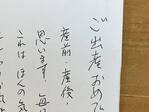 ご出産おめで
産前・産後・
思います。毎
これは ほくの気